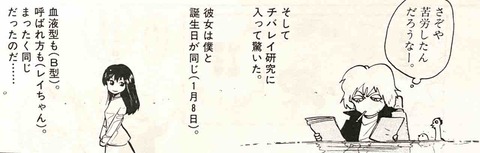 さぞや
苦労したん
だろうなー。
そして
チバレイ研究に
入って驚いた。
彼女は僕と
誕生日が同じ(1月8日)。
血液型も(B型)。
呼ばれ方も(レイちゃん)。
まったく同じ
だったのだ……